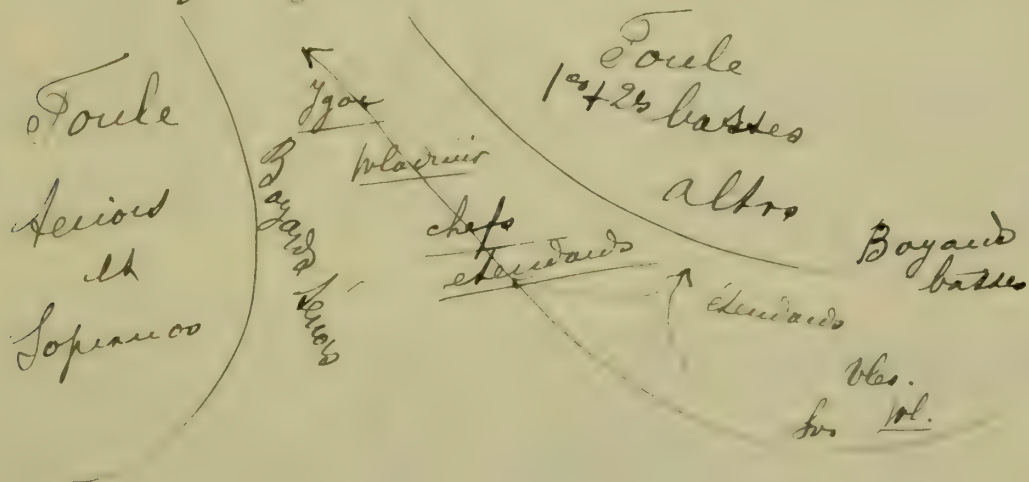 Foule
Ténors
et
Sopranos
Boyards Ténors
Ygor
Wladimir
chefs
étendards
Foule
1es + 2s basses
altos
Boyards
basses
étendards
Wl.